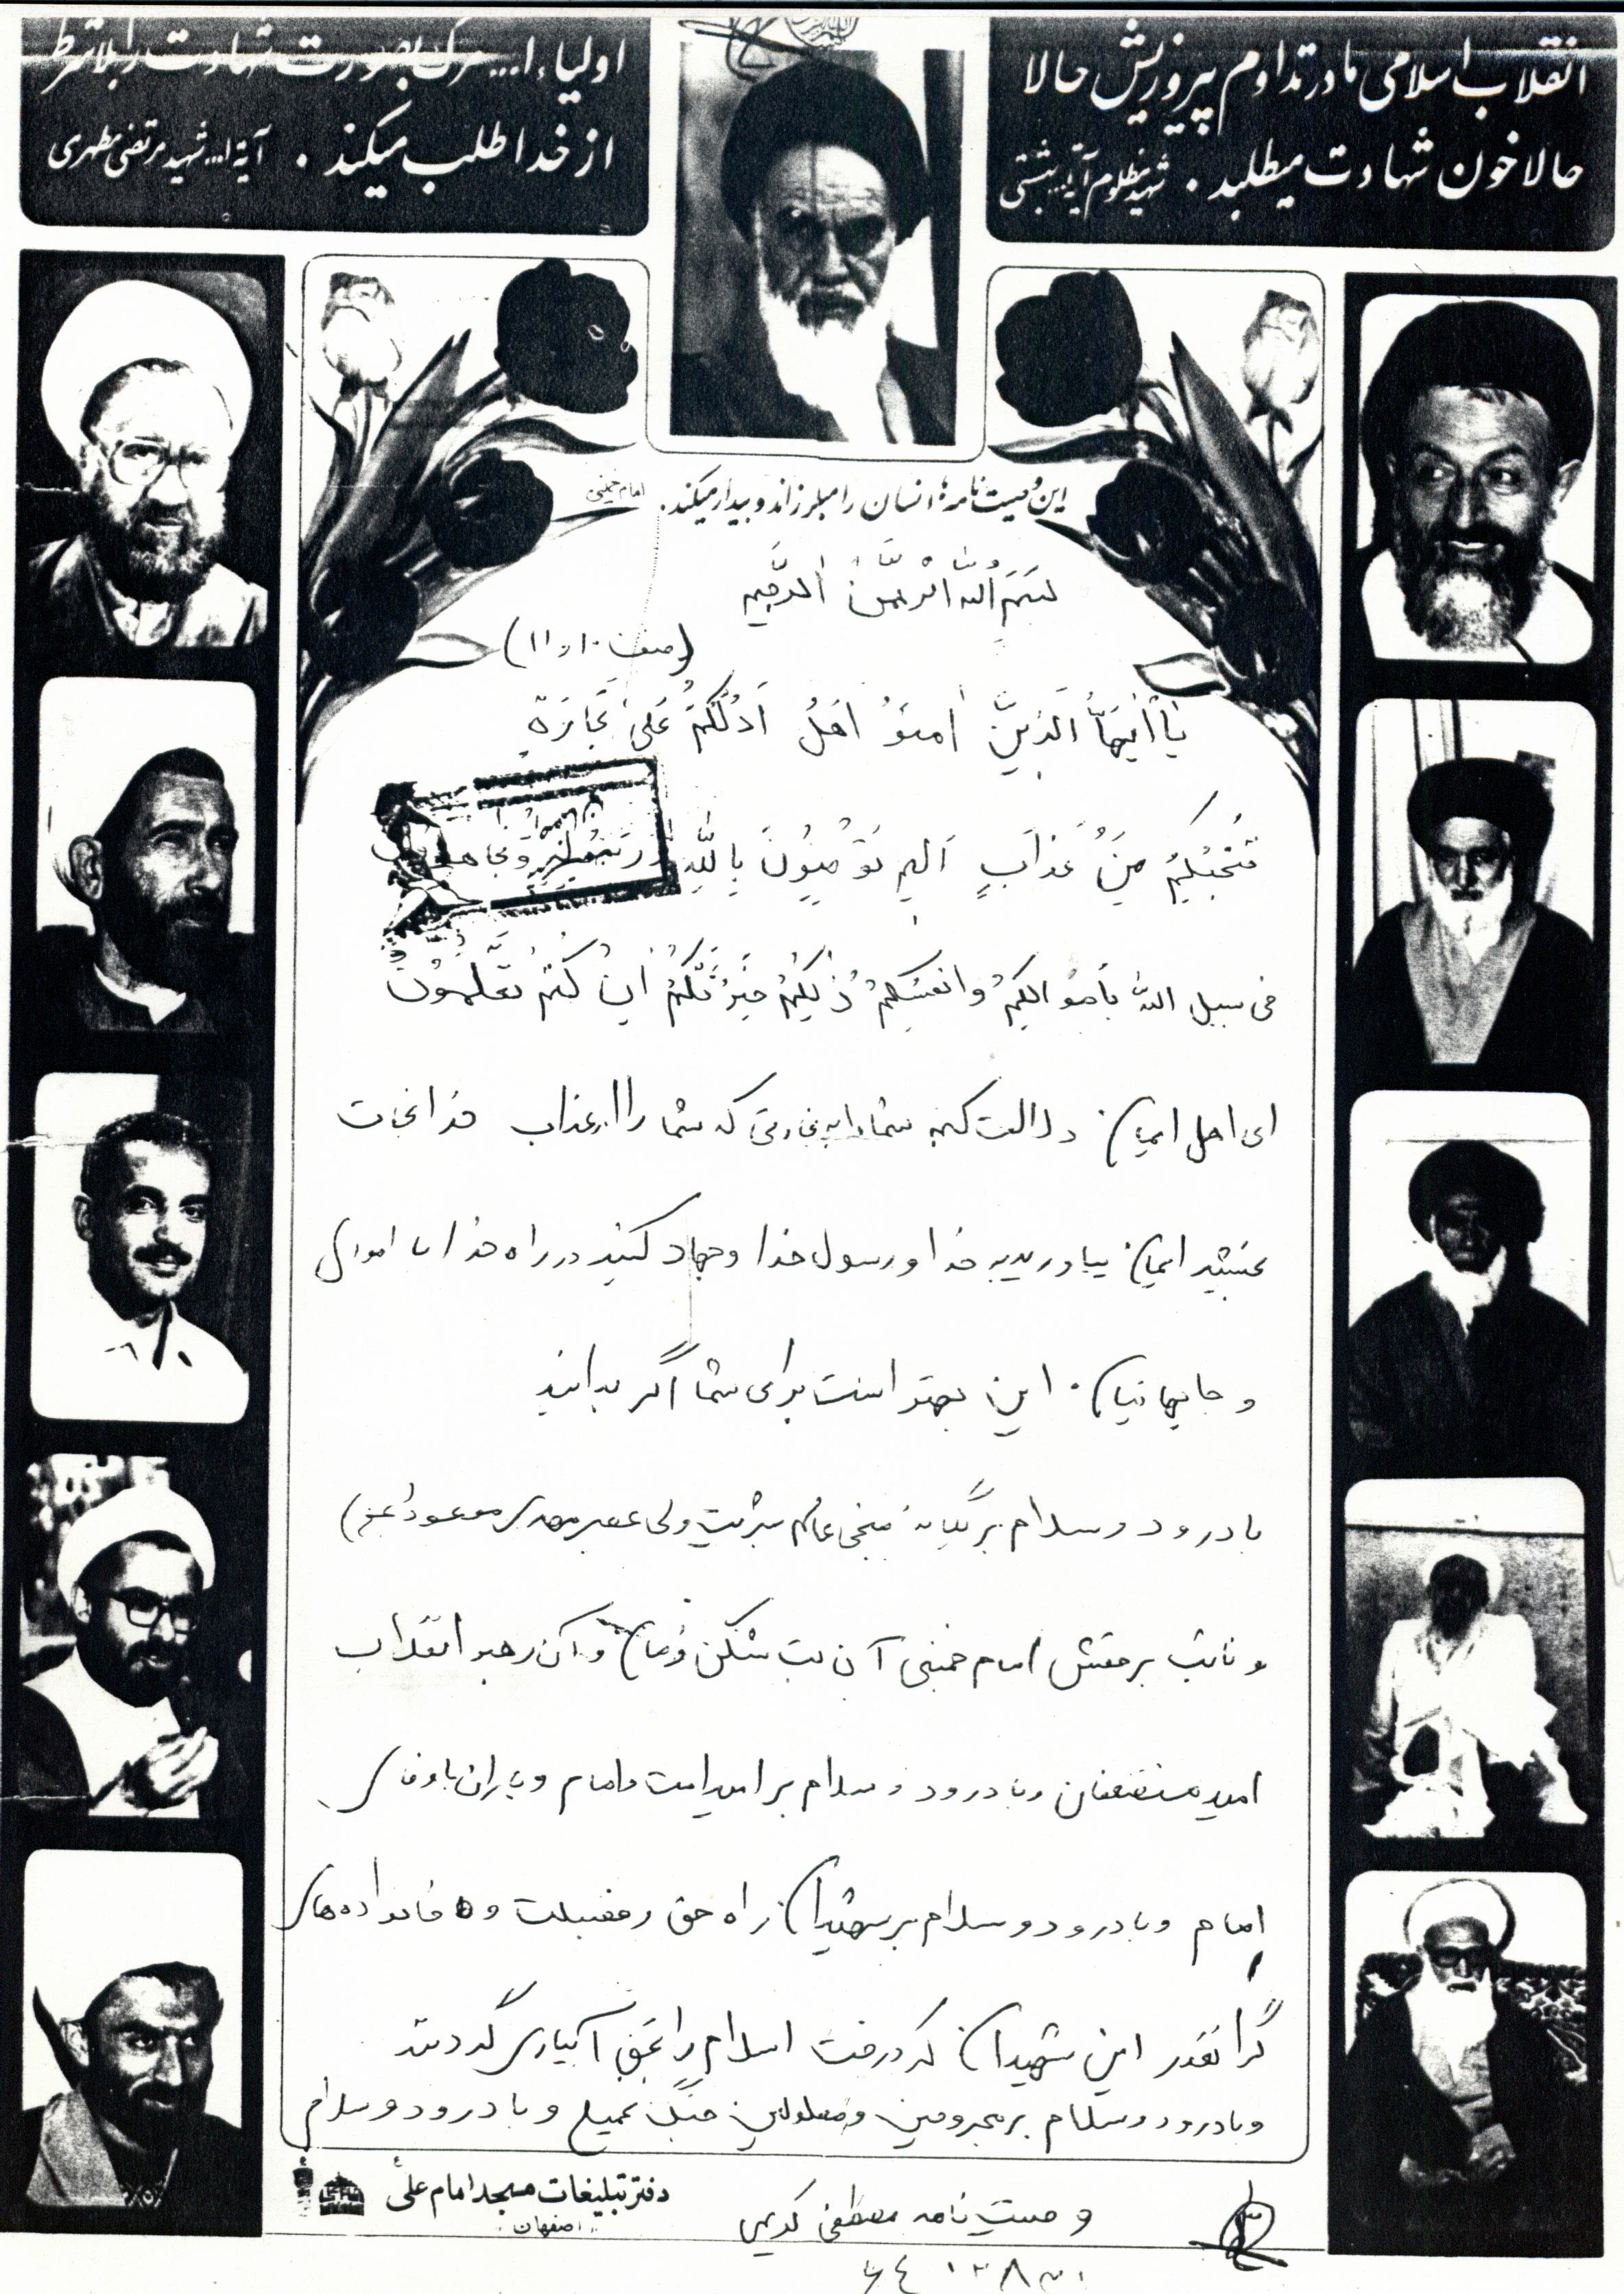 انقلاب اسلامی ما در تداوم پیروزیش حالا
حالا خون شهادت میطلبد . شهید مظلوم آیة ا... بهشتی
اولیاء ا... مرگ بصورت شهادت را بلاشرط
از خدا طلب میکنند . آیة ا... شهید مرتضی مطهری
این وصیت نامه ها انسان را میلرزاند و بیدار میکند. امام خمینی
بسم الله الرحمن الرحیم
(صف ۱۰ و ۱۱)
یا ایها الذین امنو اهل ادلکم علی تجارة
تنجیکم من عذاب الیم تومنون بالله
فی سبیل الله باموالکم وانفسکم ذلکم خیر لکم ان کنتم تعلمون
ای اهل ایمان دلالت کنم شما را به تجارتی که شما را از عذاب خدا نجات
بخشید ایمان بیاورید به خدا و رسول خدا وجهاد کنید در راه خدا با اموال
و جانهایتان . این بهتر است برای شما اگر بدانید
با درود و سلام بر یگانه منجی عالم بشریت ولی عصر مهدی موعود (عج)
و نائب برحقش امام خمینی آن بت شکن زمان و آن رهبر انقلاب
امید مستضعفان و با درود و سلام بر امید امت و امام و یاران باوفای
امام و با درود و سلام بر شهیدان راه حق و فضیلت و خانواده های
گرانقدر این شهیدان که درخت اسلام را آبیاری کردند
و با درود و سلام بر مجروحین و معلولین جنگ تحمیلی و با درود و سلام
دفتر تبلیغات مسجد امام علی
اصفهان
وصیت نامه مصطفی کریمی